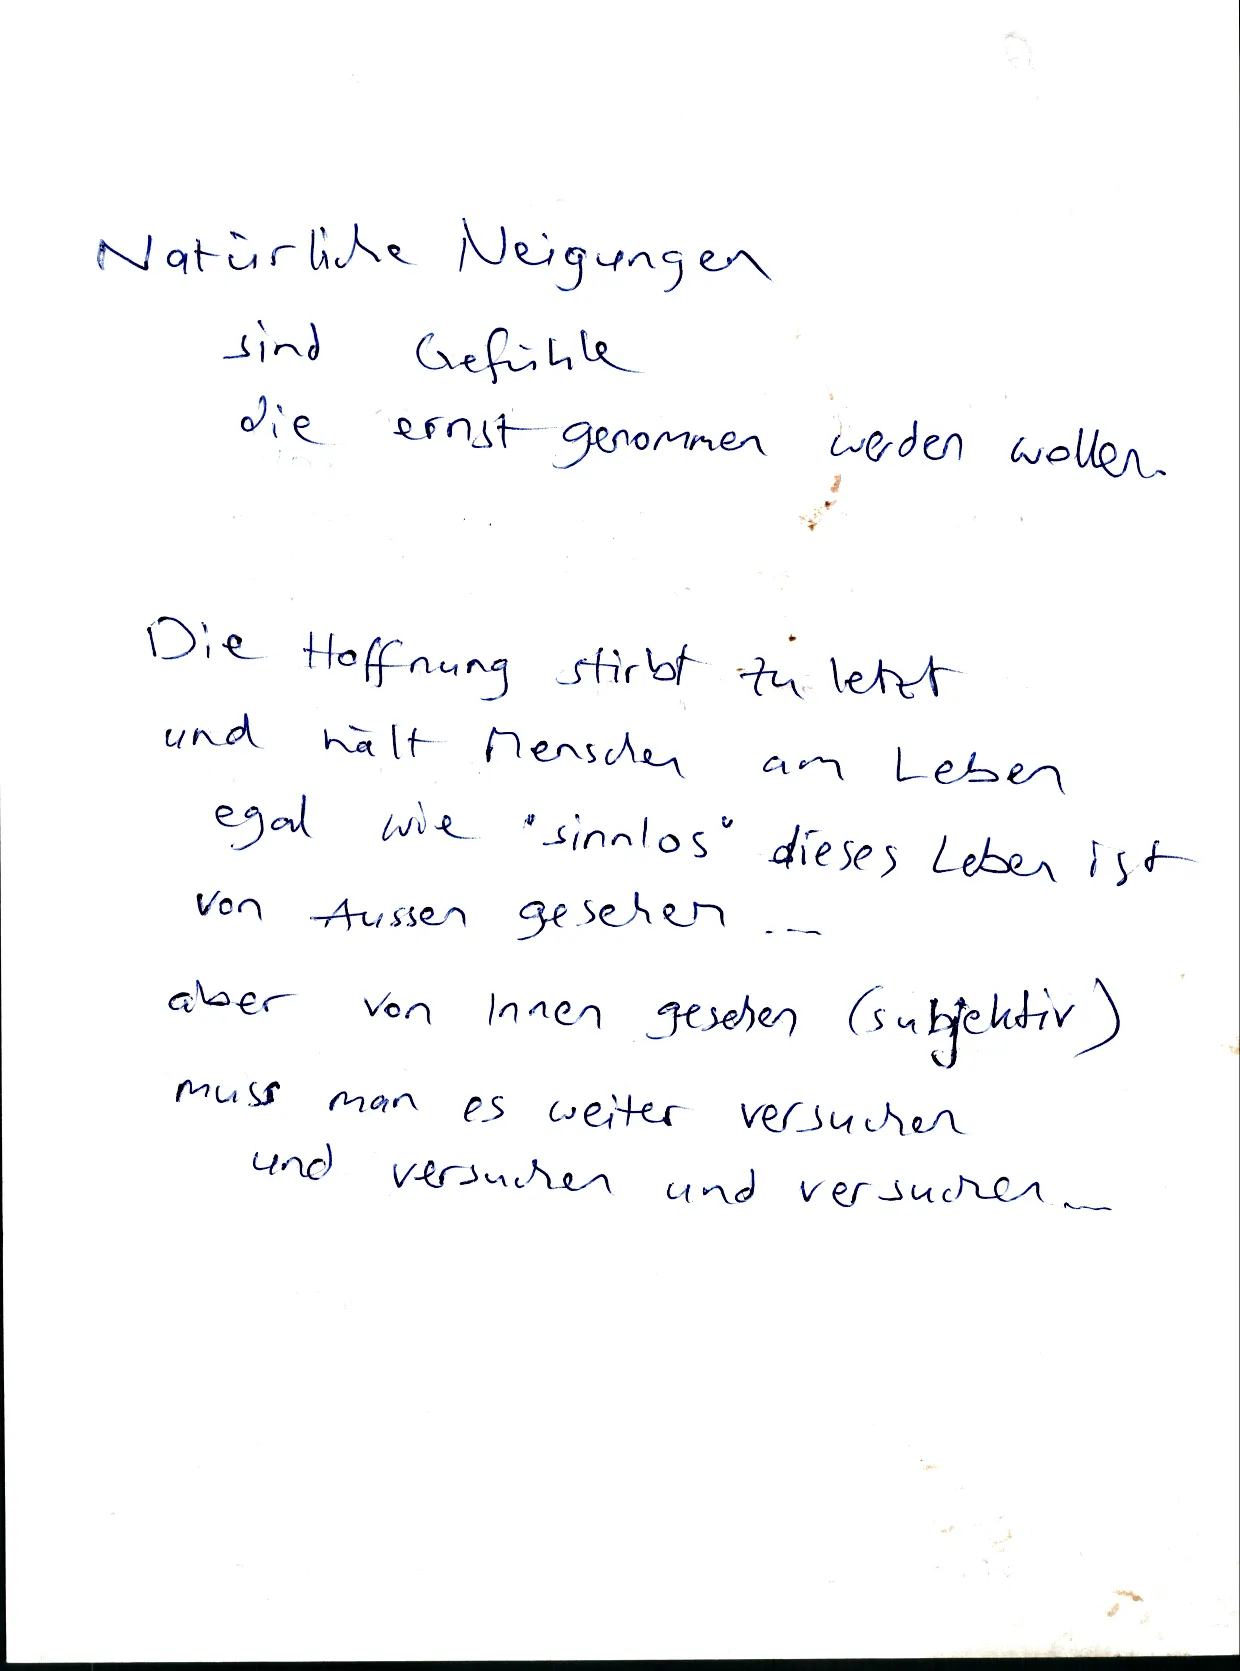 Natürliche Neigungen
sind Gefühle
die ernst genommen werden wollen.
Die Hoffnung stirbt zu letzt
und hält Menschen am Leben
egal wie "sinnlos" dieses Leben ist
von Aussen gesehen ...
aber von Innen gesehen (subjektiv)
muss man es weiter versuchen
und versuchen und versuchen ...